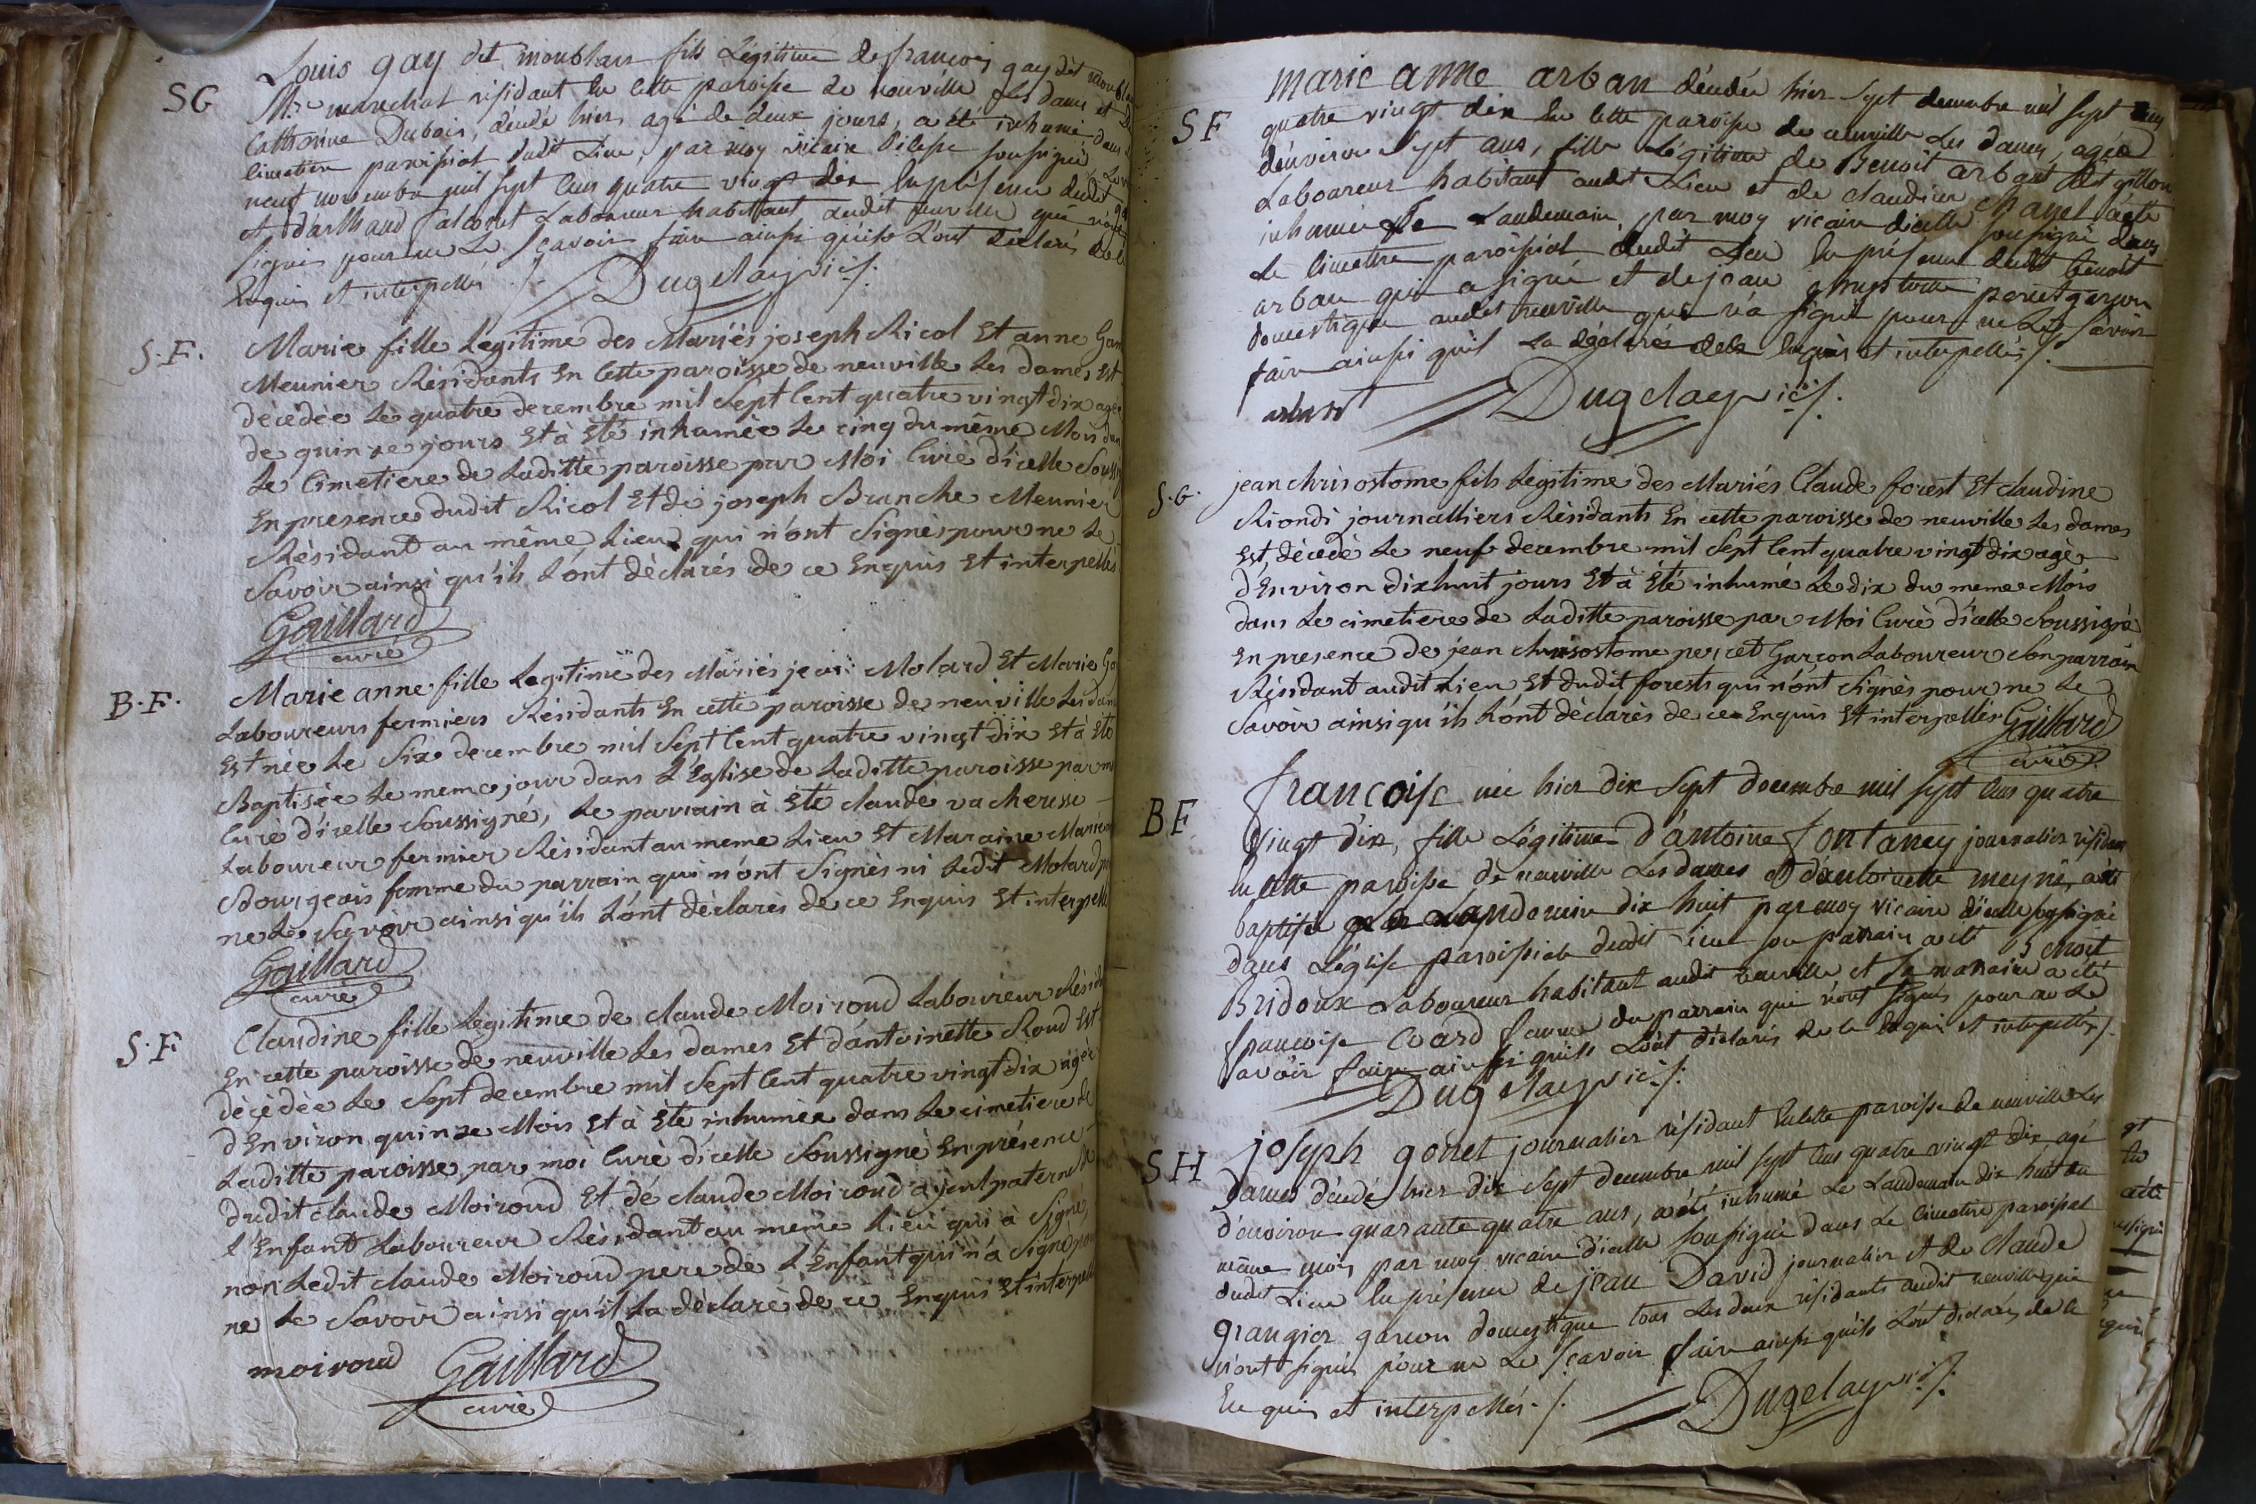 SG
Louis gay dit monblan fils Légitime de françois gay dit
Me marechal résidant En Cette paroisse de neuville Les dames et de
Catherine Dubois, décédé hier, agé de deux jours, a été inhumé dans
Cimetiere paroissial dudit Lieu, par moy vicaire d'icelle soussigné
neuf novembre mil sept Cens quatre vingt dix En présence dudit gay
et d'arthaud falconet Laboureur habitant audit neuville qui n'ont
signés pour ne Le sçavoir faire ainsi qu'ils L'ont déclarés de ce
Enquis et interpellés ./.
Dugelay vic ./.
S.F.
Marie fille Légitime des Mariés joseph Ricol Et anne
Meunier Résidants En Cette paroisse de neuville Les dames Est
décèdée Le quatre decembre mil Sept Cent quatre vingt dix agée
de quinze jours Et à Eté inhumée Le cinq du même Mois dans
Le Cimetiere de Laditte paroisse par Moi Curé d'icelle Soussigné
En presence dudit Ricol Et de joseph Branche Meunier
Résidant au même Lieu qui n'ont Signés pour ne Le
Savoir ainsi qu'ils L'ont déclarés de ce Enquis Et interpellés
Gaillard
curé
B.F.
Marie anne fille Legitime des Mariés jean Molard Et Marie
Laboureurs fermiers Résidants En cette paroisse de neuville Les dames
Est née Le Six decembre mil Sept Cent quatre vingt dix Et à Eté
Baptisée Le meme jour dans L'Eglise de Laditte paroisse par moi
Curé d'icelle Soussigné, Le parrain à Eté claude vacheresse
Laboureur fermier Résidant au meme Lieu Et Maraine Marie
Bourgeois femme du parrain qui n'ont Signés ni Ledit Molard pour
ne Le Savoir ainsi qu'ils L'ont déclarés de ce Enquis Et interpellés
Gaillard
curé
S.F
Claudine fille Légitime de claude Moiroud Laboureur Résidant
En cette paroisse de neuville Les dames Et d'antoinette Roud Est
décèdée Le Sept decembre mil Sept Cent quatre vingt dix agée
d'Environ quinze Mois Et à Eté inhumée dans Le cimetiere de
Laditte paroisse par moi Curé d'icelle Soussigné En présence
dudit claude Moiroud Et de claude Moiroud ayeul paternel de
l'Enfant Laboureur Résidant au même Lieu qui à Signé,
non Ledit claude Moiroud pere de L'Enfant qui n'a Signé pour
ne Le Savoir ainsi qu'il La déclaré de ce Enquis Et interpellé
moiroud Gaillard
curé
SF
marie anne arban décédée hier sept decembre mil sept cens
quatre vingt dix En Cette paroisse de neuville Les dames, agée
d'environ sept ans, fille Légitime de Benoit arban dit gillon
Laboureur habitant audit Lieu et de claudine Chanel a été
inhumée Le Landemain par moy vicaire d'icelle soussigné dans
Le Cimetiere paroissial dudit Lieu En présence dudit Benoit
arban qui a signé et de jean perret garçon
domestique audit neuville qui n'a signé pour ne Le savoir
faire ainsi quil La déclaré de ce Enquis et interpellés ./.
arban Dugelay vic ./.
S.G.
jean chrisostome fils Légitime des Mariés Claude forest Et claudine
Riondi journalliers Résidants En cette paroisse de neuville Les dames
Est, décédé Le neuf decembre mil Sept Cent quatre vingt dix agé
d'Environ dix huit jours Et à Eté inhumé Le dix du meme Mois
dans Le cimetiere de Laditte paroisse par Moi Curé d'icelle Soussigné
En presence de jean chrisostome perret Garçon Laboureur Son parrain
Résidant audit Lieu Et dudit forest qui n'ont Signés pour ne Le
Savoir ainsi qu'ils L'ont déclarés de ce Enquis Et interpellés Gaillard
curé
BF
françoise née hier dix sept decembre mil sept Cens quatre
vingt dix, fille Légitime d'antoine fontaney journalier résidant
En Cette paroisse de neuville Les dames et d'antoinette meyné, a été
baptisée Landemain dix huit par moy vicaire d'icelle soussigné
dans L'église paroissiale dudit Lieu son parrain a été Benoit
Bridoux Laboureur habitant audit neuville et Sa maraine a été
françoise Evard femme du parrain qui n'ont signés pour ne Le
savoir faire ainsi qu'ils L'ont déclarés de ce Enquis et interpellés ./.
Dugelay vic ./.
SH
joseph gonet journalier résidant En Cette paroisse de neuville Les
dames décédé hier dix sept decembre mil sept Cens quatre vingt dix agé
d'environ quarante quatre ans, a été inhumé Le Landemain dix huit du
même mois par moy vicaire d'icelle soussigné dans Le Cimetiere paroissial
dudit Lieu En présence de jean David journalier et de Claude
grangier garçon domestique tous Les deux résidants audit neuville qui
n'ont signés pour ne Le sçavoir faire ainsi qu'ils L'ont déclarés de ce
En quis et interpellés ./.
Dugelay vic ./.